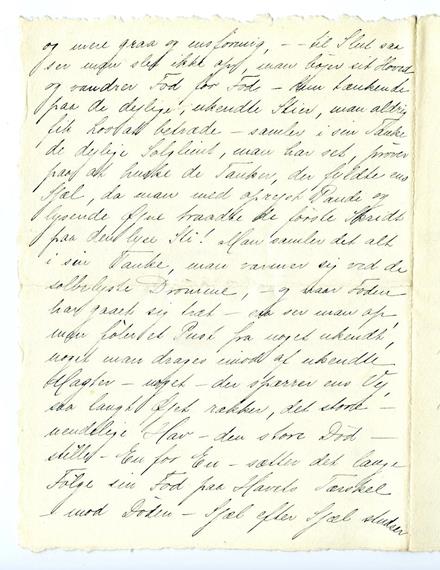 og mere graa og ensformig, – – til Slut saa
ser man slet ikke op, man bøjer sit Hoved
og vandrer Fod for Fod – kun tænkende
paa de dejlige, ukendte Stier, man aldrig
fik Lov at betræde – samler i sin Tanke
de dejlige Solglimt, man har set, prøver
paa at huske de Tanker, der fyldte ens
Sjæl, da man med opløftet Pande og
lysende Øjne traadte de første Skridt
paa den lyse Sti! Man samler det alt
i sin Tanke, man varmer sig ved de
solbelyste Drømme, – og naar Foden
har gaaet sig træt – da ser man op
man føler et Pust fra noget ukendt,
noget man drages imod af ukendte
Magter – noget – der spærrer ens Vej,
saa langt Øjet rækker, det store –
uendelige Hav – den store Død –
stille – En for En – sætter det lange
Følge sin Fod paa Havets Tærskel
– mod Døden – Sjæl efter Sjæl